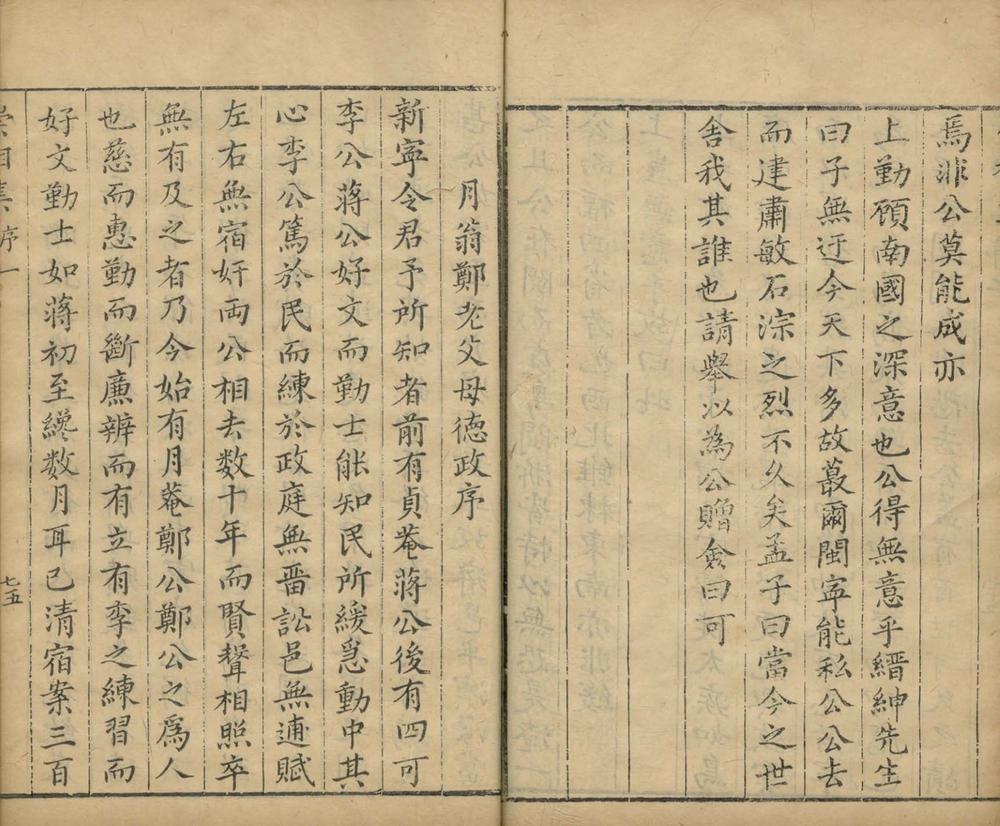 焉非公莫能成亦
上勤顧南國之深意也公得無意乎縉紳先生
曰子無迂今天下多故蕞爾閩寕能私公公去
而建肅敏石淙之烈不久矣孟子曰當今之世
舍我其誰也請舉以為公贈僉曰可
月翁鄭老父母德政序
新寕令君予所知者前有貞菴蔣公後有四可
李公蔣公好文而勤士能知民所緩急動中其
心李公篤於民而練於政庭無畱訟邑無逋賦
左右無宿奸兩公相去数十年而賢聲相照卒
無有及之者乃今始有月菴鄭公鄭公之爲人
也慈而惠勤而斷廉辨而有立有李之練習而
好文勤士如蔣初至纔数月耳已清宿案三百
集序一
七五